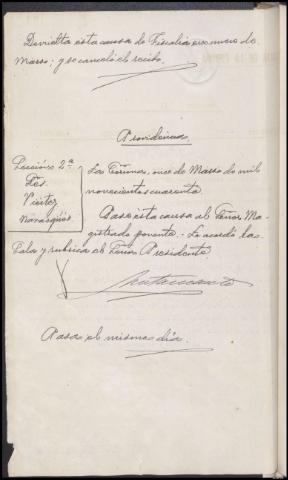 Devuelta esta causa de Fiscalía en nueve de
Marzo; y se canceló el recibo.
Providencia
Sección 2ª
Tes.
Vieitez
Navasqüés
La Coruña, once de Marzo de mil
novecientos cuarenta.
Pase esta causa al Señor Ma-
gistrado ponente.- Lo acordó la
Sala y rubrica el Señor Presidente.
Pasa el mismo día.